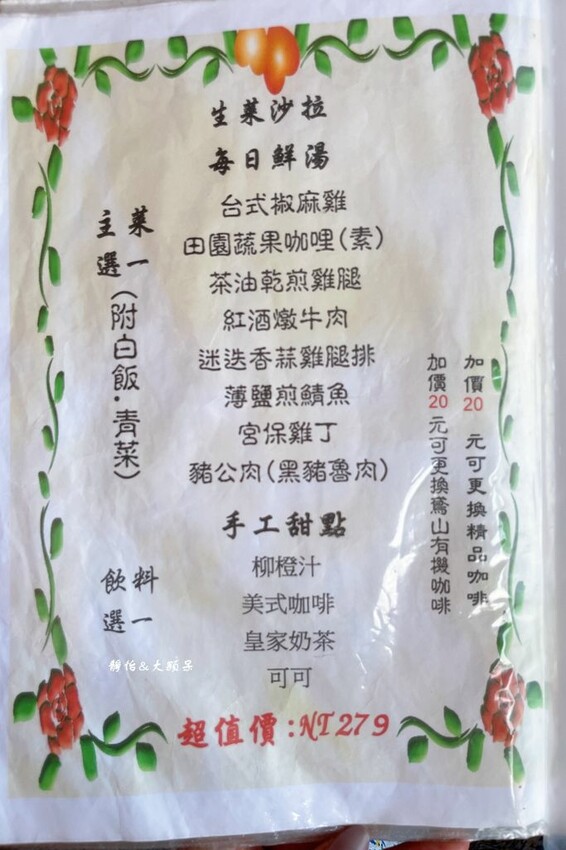 生菜沙拉
每日鮮湯
主菜
選一
(附白飯·青菜)
台式椒麻雞
田園蔬果咖哩(素)
茶油乾煎雞腿
紅酒燉牛肉
迷迭香蒜雞腿排
薄鹽煎鯖魚
宮保雞丁
豬公肉(黑豬魯肉)
加價20 元可更換精品咖啡
加價20 元可更換鳶山有機咖啡
手工甜點
飲料
選一
柳橙汁
美式咖啡
皇家奶茶
可可
超值價:NT279